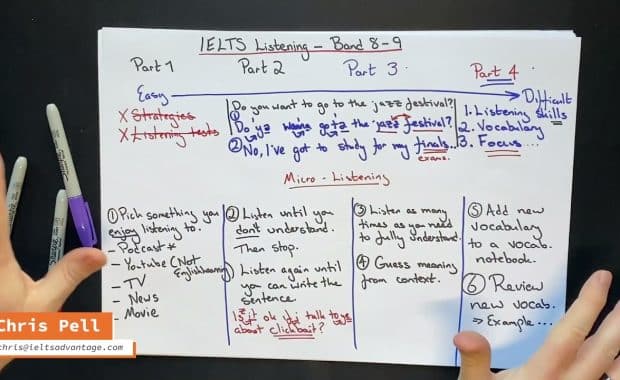 IELTS Listening - Band 8-9
Part 1 Part 2 Part 3 Part 4
Easy Difficult
X Strategies
X Listening tests
Do you want to go to the jazz festival?
① Do ya wanna gota the jazz festival?
② No, I've got to study for my finals.
exams.
1. Listening skills
2. Vocabulary
3. Focus...
Micro-Listening
① Pick something you
enjoy listening to.
- Podcast *
- Youtube (NOT
English learning)
- TV
- News
- Movie
② Listen until you
dont understand.
Then stop.
Listen again until
you can write the
sentence
Is it ok if I talk to you
about clickbait?
③ Listen as many
times as you need
to fully understand.
④ Guess meaning
from context.
⑤ Add new
vocabulary
to a vocab.
notebook.
⑥ Review
new vocab.
⇒ Example...
Chris Pell
chris@ieltsadvantage.com